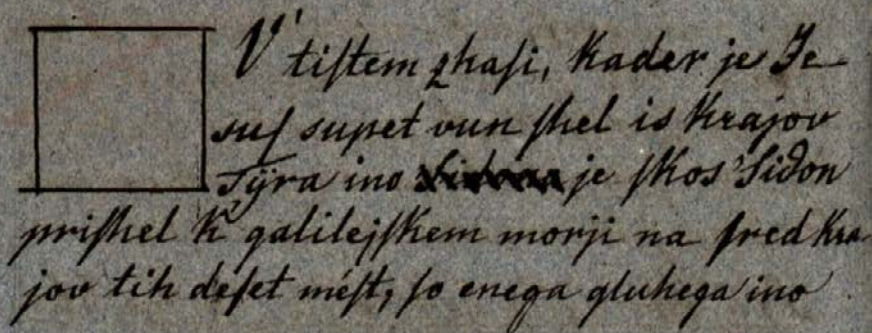 V' tiſtem zhaſi, kader je Je-
suſ supet vun ſhel is krajov
Tÿra ino je ſkos Sidon
priſhel k' galilejſkem morji na ſred kra-
jov tih deſet méſt, ſo enega gluhega ino